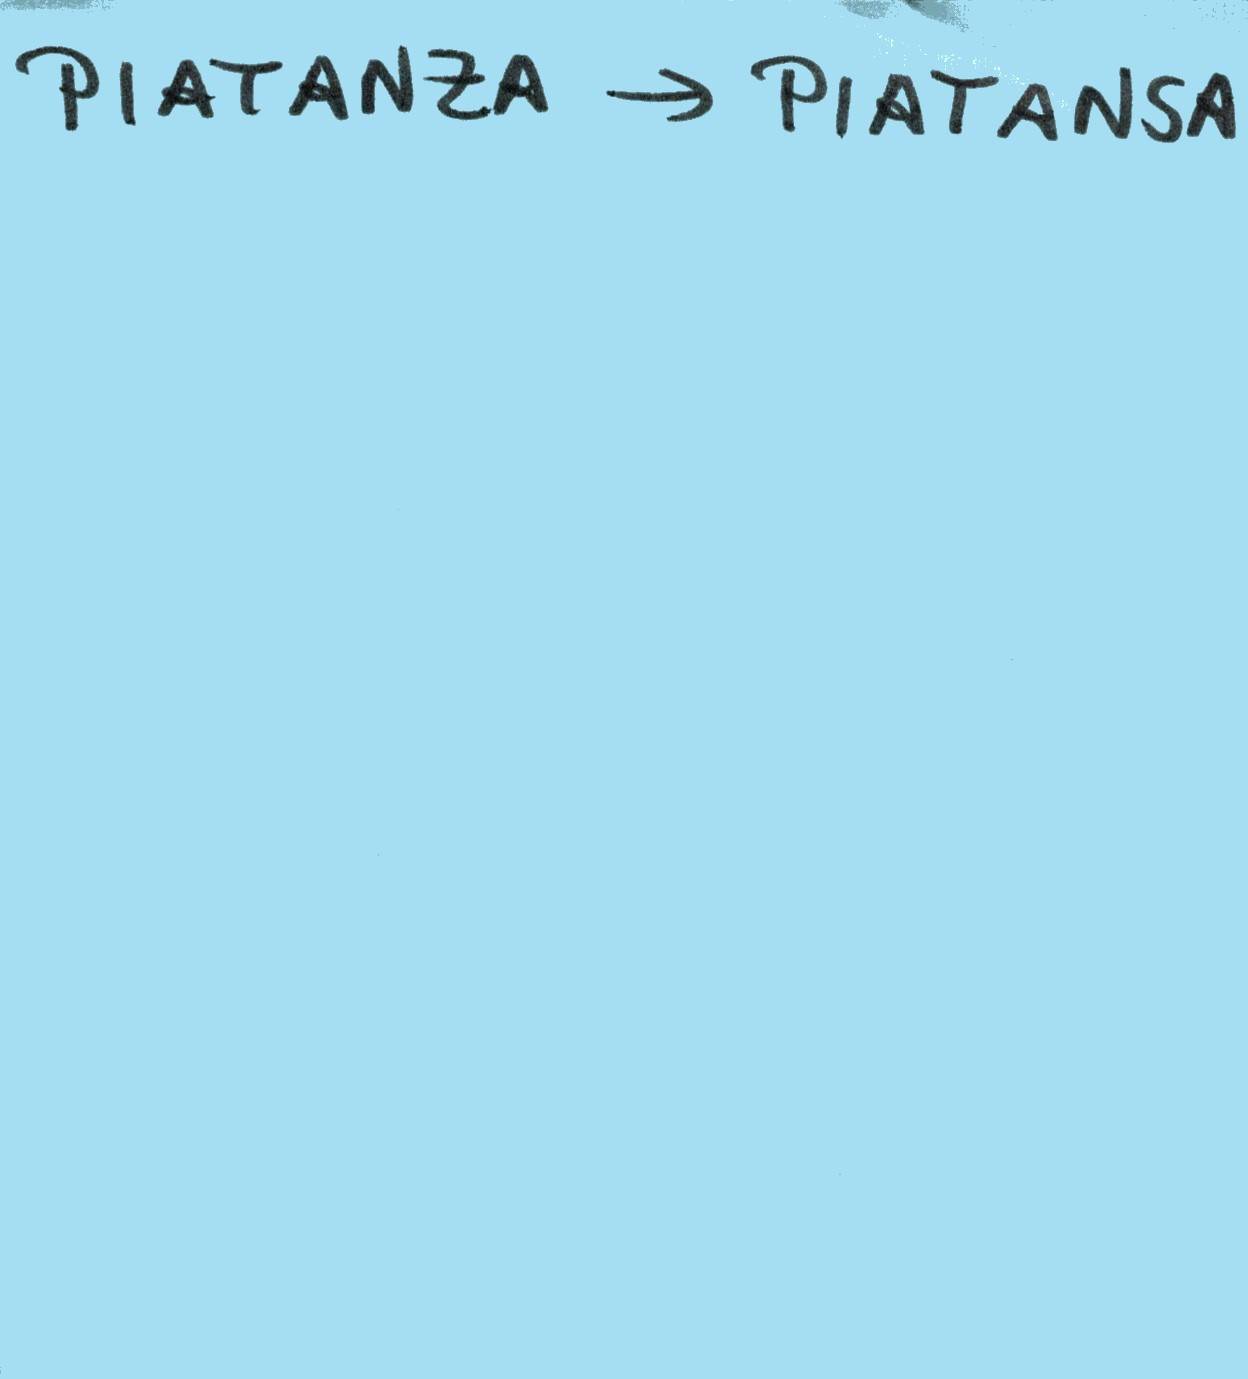 PIATANZA → PIATANSA